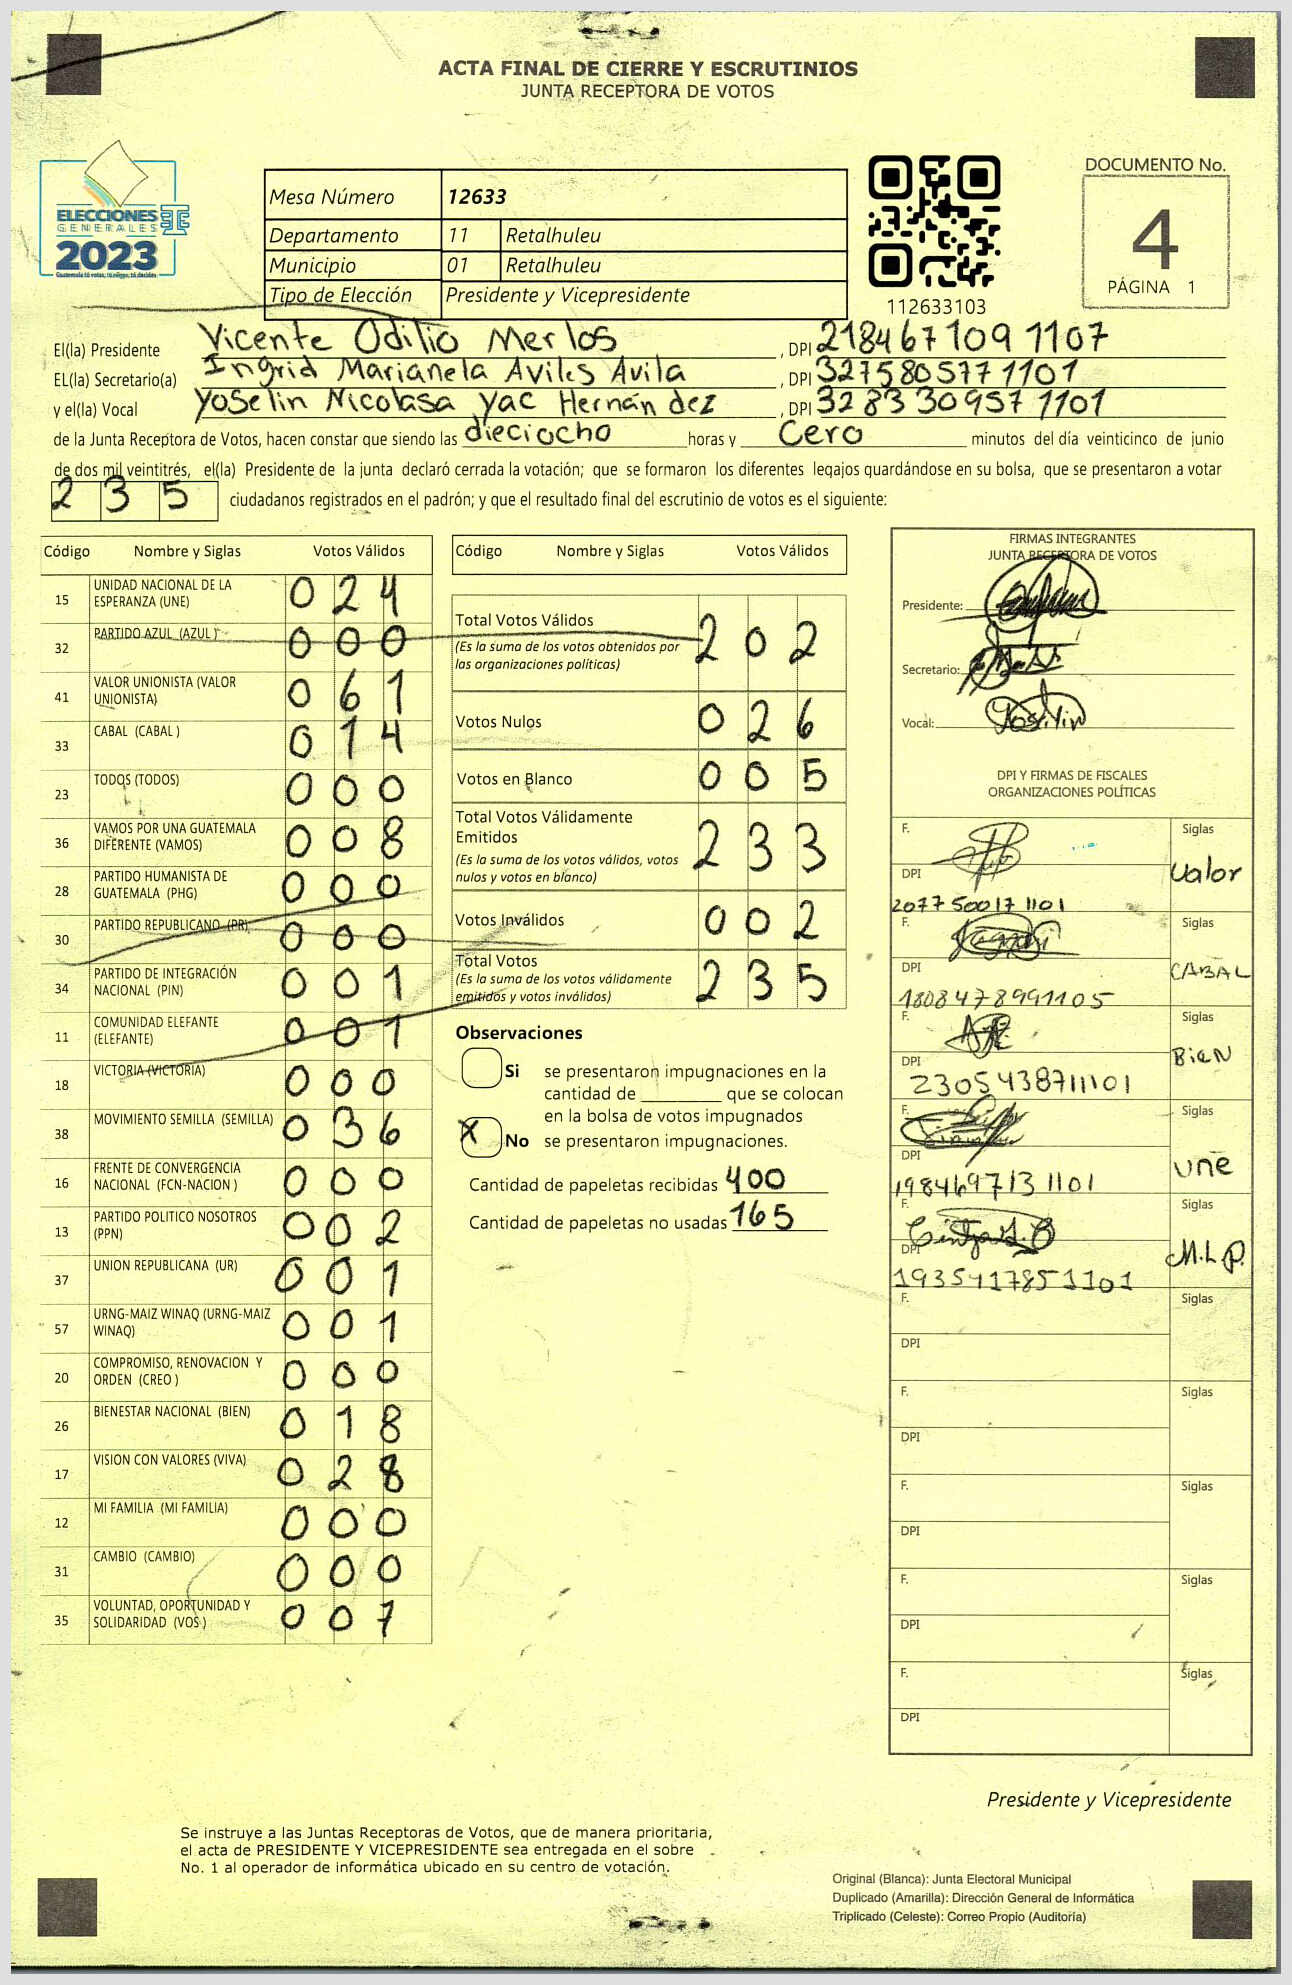 ACTA FINAL DE CIERRE Y ESCRUTINIOS
JUNTA RECEPTORA DE VOTOS
ELECCIONES
GENERALES
2023
Guatemala tú votas, tú eliges, tú decides
Mesa Número 12633
Departamento 11 Retalhuleu
Municipio 01 Retalhuleu
Tipo de Elección Presidente y Vicepresidente
112633103
DOCUMENTO No.
4
PÁGINA 1
El(la) Presidente Vicente Odilio Merlos, DPI 2184671091107
EL(la) Secretario(a) Ingrid Marianela Aviles Avila, DPI 3275805771101
y el(la) Vocal Yoselin Nicolasa Yac Hernández, DPI 3283309571101
de la Junta Receptora de Votos, hacen constar que siendo las dieciocho horas y Cero minutos del día veinticinco de junio
de dos mil veintitrés, el(la) Presidente de la junta declaró cerrada la votación; que se formaron los diferentes legajos guardándose en su bolsa, que se presentaron a votar
235 ciudadanos registrados en el padrón; y que el resultado final del escrutinio de votos es el siguiente:
Código Nombre y Siglas Votos Válidos
15 UNIDAD NACIONAL DE LA
ESPERANZA (UNE) 024
32 PARTIDO AZUL (AZUL) 000
41 VALOR UNIONISTA (VALOR
UNIONISTA) 061
33 CABAL (CABAL ) 014
23 TODOS (TODOS) 000
36 VAMOS POR UNA GUATEMALA
DIFERENTE (VAMOS) 008
28 PARTIDO HUMANISTA DE
GUATEMALA (PHG) 000
30 PARTIDO REPUBLICANO (PR) 000
34 PARTIDO DE INTEGRACIÓN
NACIONAL (PIN) 001
11 COMUNIDAD ELEFANTE
(ELEFANTE) 001
18 VICTORIA (VICTORIA) 000
38 MOVIMIENTO SEMILLA (SEMILLA) 036
16 FRENTE DE CONVERGENCIA
NACIONAL (FCN-NACION ) 000
13 PARTIDO POLITICO NOSOTROS
(PPN) 002
37 UNION REPUBLICANA (UR) 001
57 URNG-MAIZ WINAQ (URNG-MAIZ
WINAQ) 001
20 COMPROMISO, RENOVACION Y
ORDEN (CREO ) 000
26 BIENESTAR NACIONAL (BIEN) 018
17 VISION CON VALORES (VIVA) 028
12 MI FAMILIA (MI FAMILIA) 000
31 CAMBIO (CAMBIO) 000
35 VOLUNTAD, OPORTUNIDAD Y
SOLIDARIDAD (VOS ) 007
Código Nombre y Siglas Votos Válidos
Total Votos Válidos 202
(Es la suma de los votos obtenidos por
las organizaciones políticas)
Votos Nulos 026
Votos en Blanco 005
Total Votos Válidamente
Emitidos 233
(Es la suma de los votos válidos, votos
nulos y votos en blanco)
Votos Inválidos 002
Total Votos 235
(Es la suma de los votos válidamente
emitidos y votos inválidos)
Observaciones
Si se presentaron impugnaciones en la
cantidad de ________ que se colocan
en la bolsa de votos impugnados
X No se presentaron impugnaciones.
Cantidad de papeletas recibidas 400
Cantidad de papeletas no usadas 165
FIRMAS INTEGRANTES
JUNTA RECEPTORA DE VOTOS
Presidente:
Secretario:
Vocal: Yoselin
DPI Y FIRMAS DE FISCALES
ORGANIZACIONES POLÍTICAS
F. Siglas
Valor
DPI
2077500171101
F. Siglas
CABAL
DPI
1808478991105
F. Siglas
BiEN
DPI
2305438711101
F. Siglas
une
DPI
1984697131101
F. Siglas
M.L.P.
DPI
1935417851101
F. Siglas
DPI
F. Siglas
DPI
F. Siglas
DPI
F. Siglas
DPI
F. Siglas
DPI
Presidente y Vicepresidente
Se instruye a las Juntas Receptoras de Votos, que de manera prioritaria,
el acta de PRESIDENTE Y VICEPRESIDENTE sea entregada en el sobre
No. 1 al operador de informática ubicado en su centro de votación.
Original (Blanca): Junta Electoral Municipal
Duplicado (Amarilla): Dirección General de Informática
Triplicado (Celeste): Correo Propio (Auditoría)